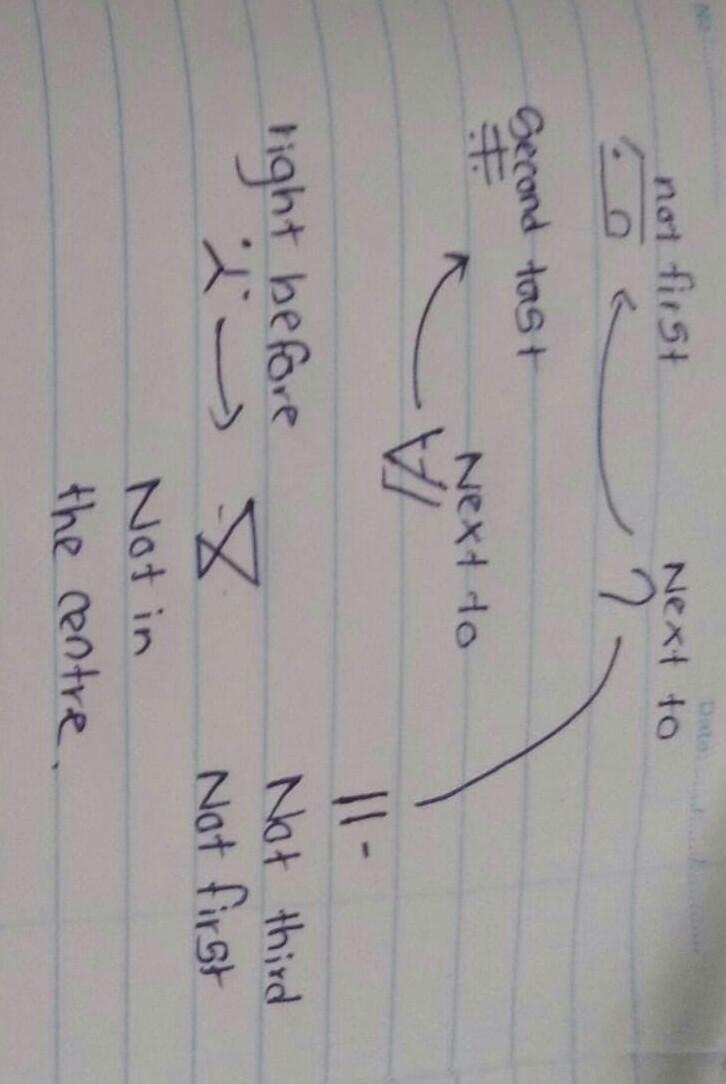 No:
Date:
not first
Next to
?
second last
Next to
right before
Not in
the centre.
Not third
Not first